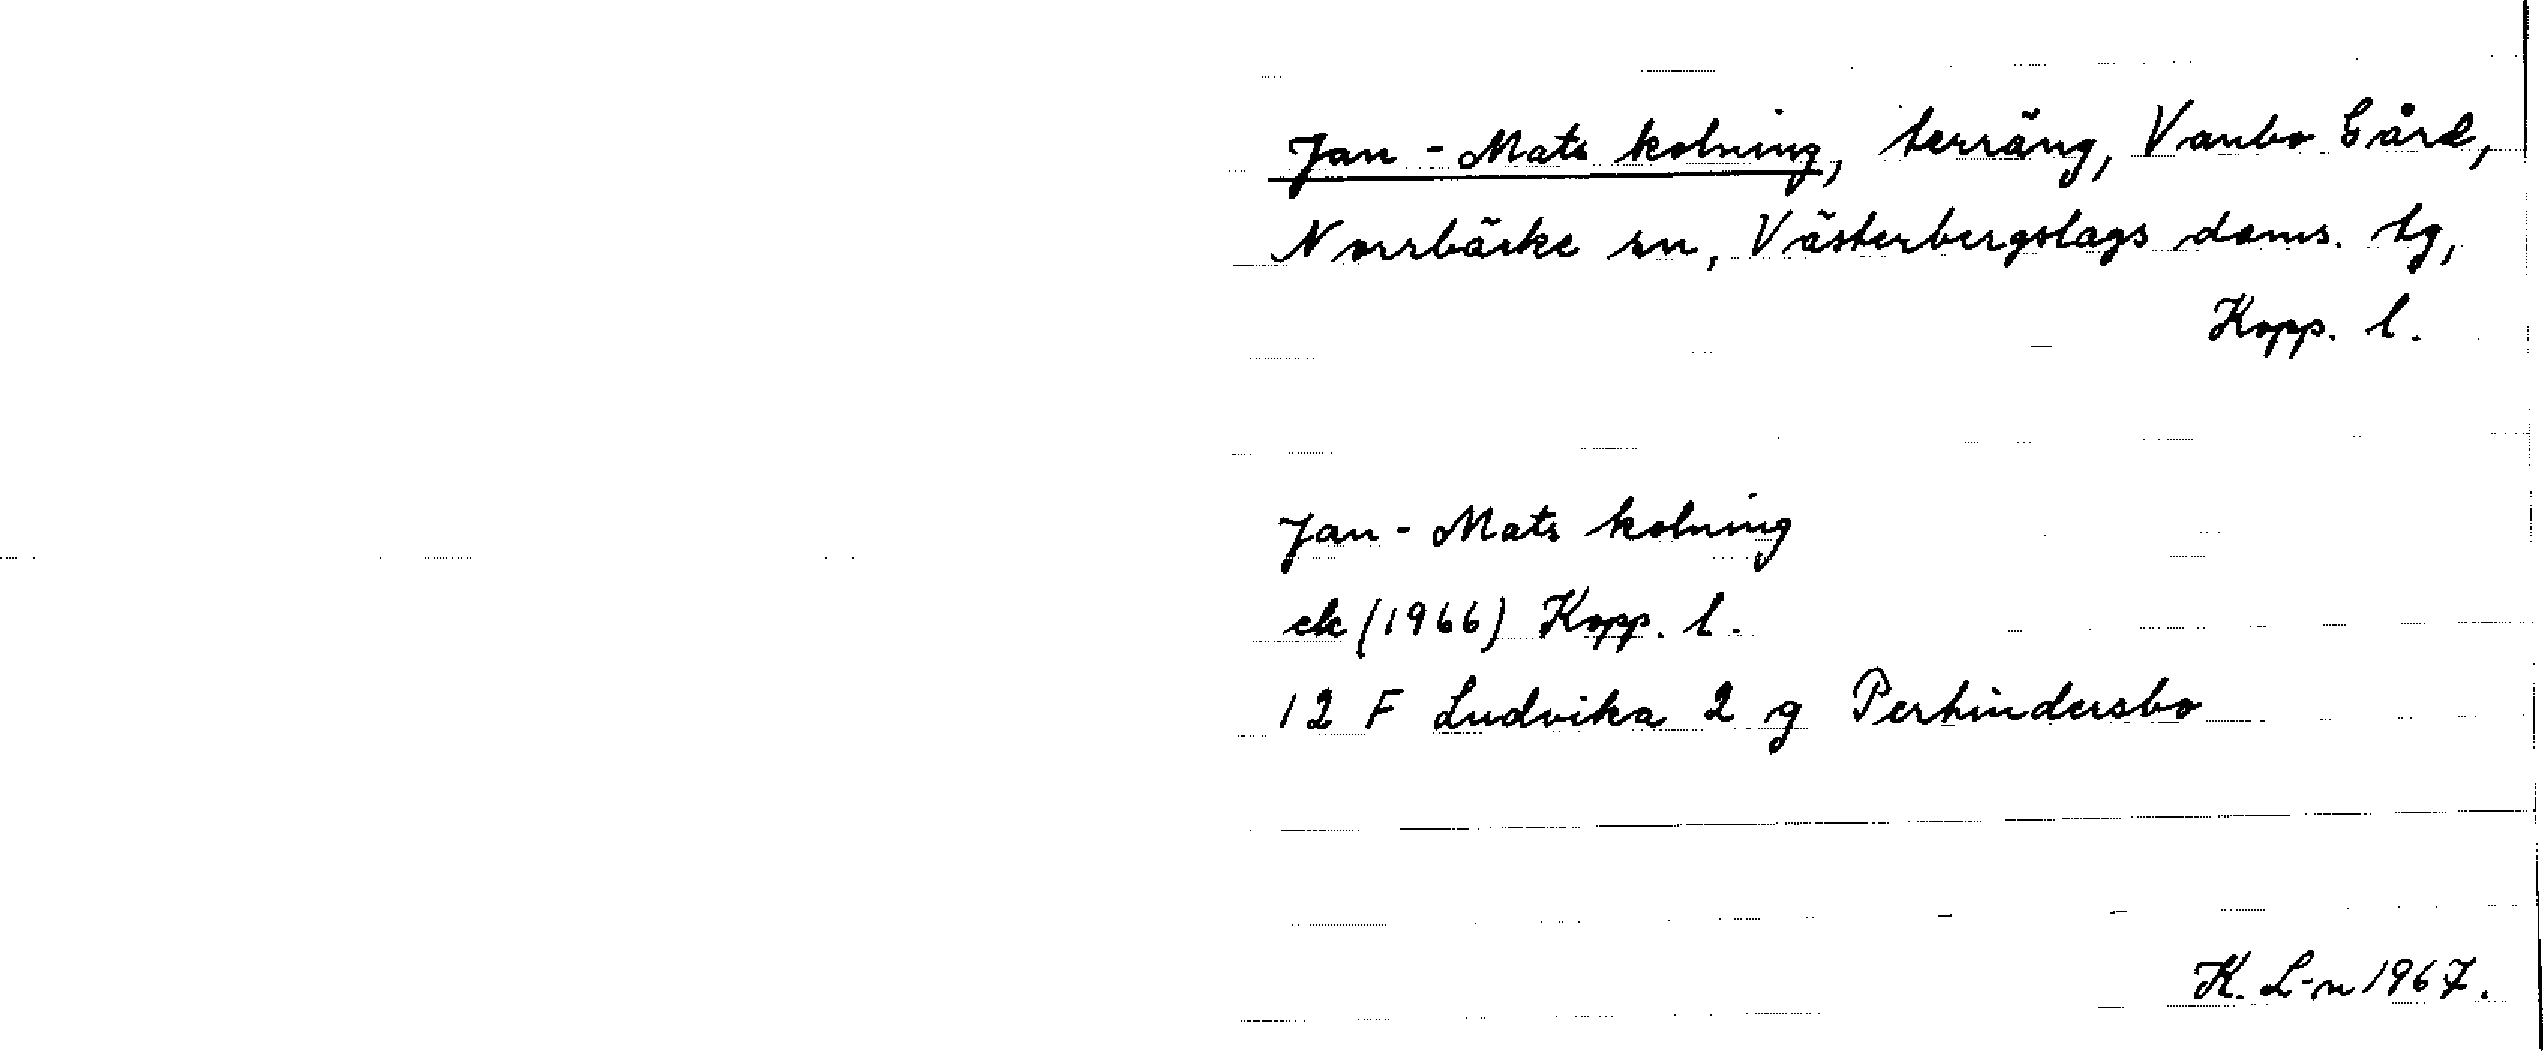 Jan-Mats kolning, terräng, Vanbo Gård,
Norrbärke sn, Västerbergslags doms. tg,
Kopp. l.
Jan-Mats kolning
ek (1966) Kopp. l.
12 F Ludvika 2 g Perhindersbo
K. L-n 1967.